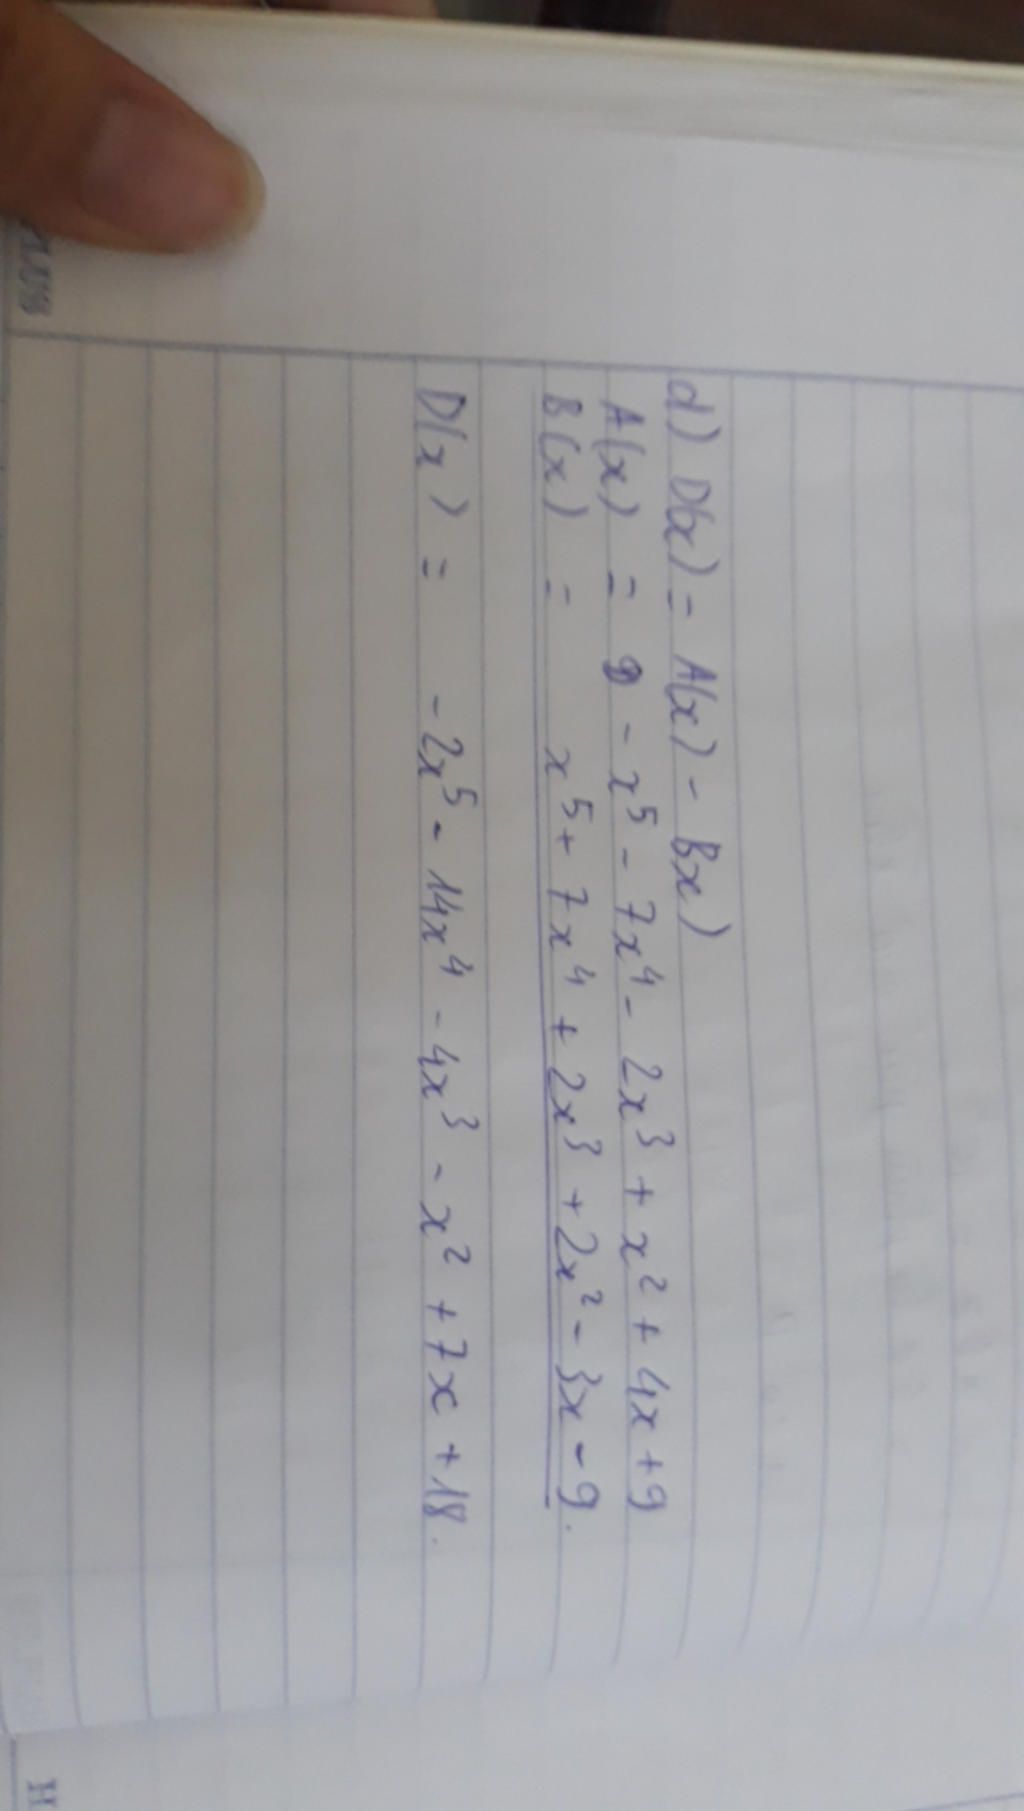 d) D(x) = A(x) - Bx)
A(x) = - x⁵ - 7x⁴ - 2x³ + x² + 4x + 9
B(x) = x⁵ + 7x⁴ + 2x³ + 2x² - 3x - 9.
D(x) = -2x⁵ - 14x⁴ - 4x³ - x² + 7x + 18.
H